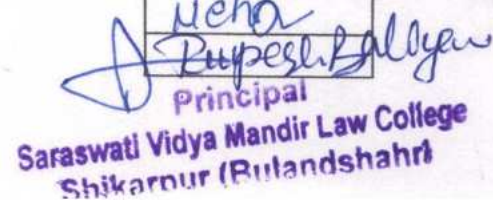 Neha
Rupesh Balyan
Principal
Saraswati Vidya Mandir Law College
Shikarpur (Bulandshahr)